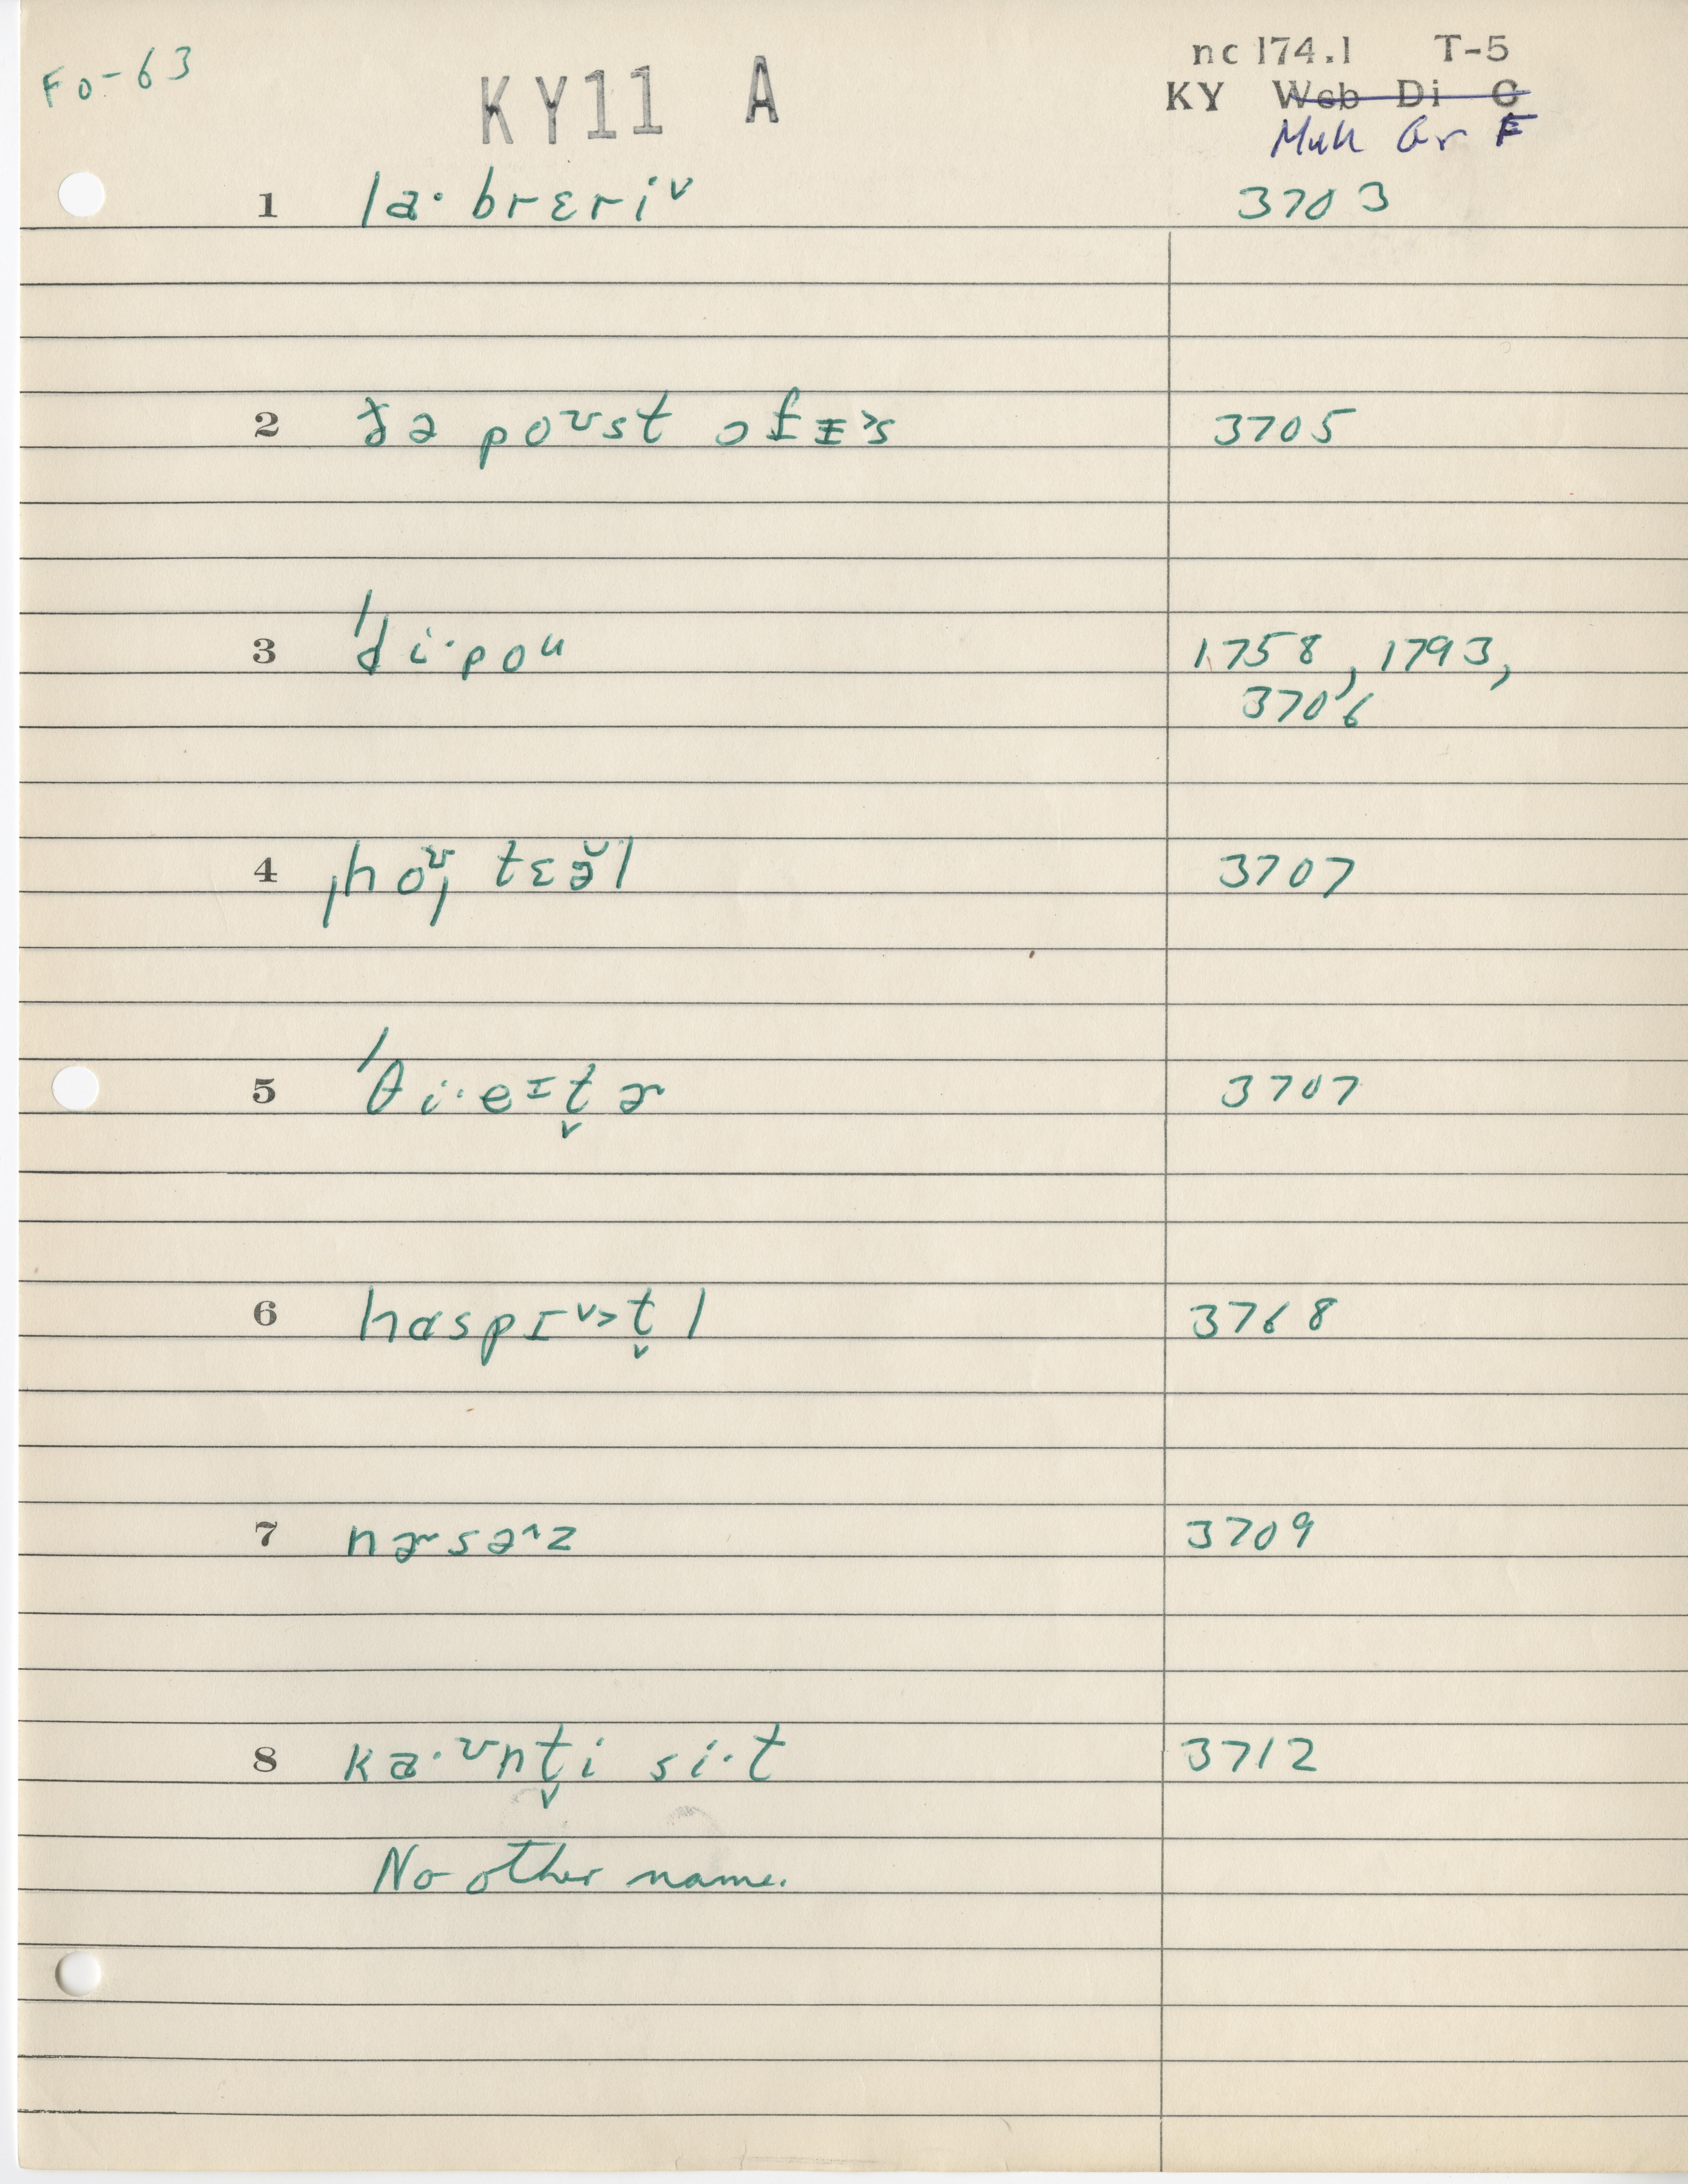 Fo-63
KY11 A
nc 174.1 T-5
KY Web Di C
Muh Gr F
1 la·brɛriᵛ 3703
2 ðə poᶷst ɔfɪ˃s 3705
3 ˈdi·poᵘ 1758, 1793,
3706
4 ˌhoᶷˌtɛə̆l 3707
5 ˈθi·eᶦt̬ɚ 3707
6 hɑspɪ˅˃t̬l 3768
7 nɚsə˄z 3709
8 ka·ᶷnt̬i si·t 3712
No other name.